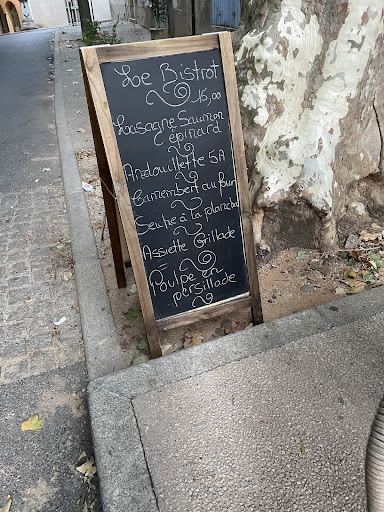 Le Bistrot
15,00
Lasagne Saumon
épinard
Andouillette 5A
Camembert au four
Seiche à la plancha
Assiette Grillade
Poulpe en
persillade